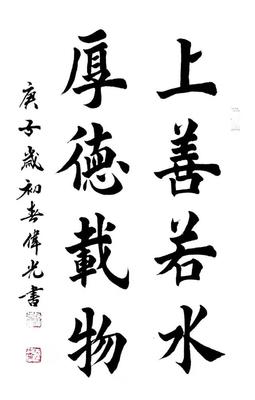 上善若水
厚德載物
庚子歲初春偉光書